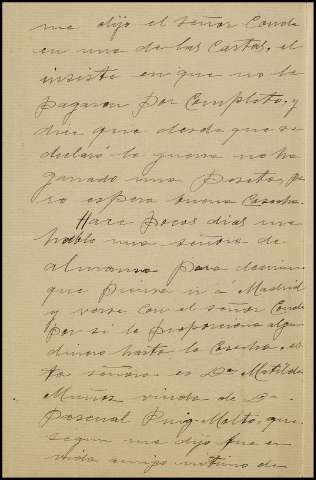 me dijo el señor Conde
en una de las Cartas, el
insiste en que no le
pagaron por Completo, y
dice que desde que se
declaró la guerra no ha
ganado una peseta, pe
ro espera buena Cosecha.
Hace pocos dias me
habló una señora de
almansa para decirme
que piensa ir á Madrid
y verse con el señor Conde
por si le proporciona algun
dinero hasta la Cosecha, es
ta señora es Dª Matilde
Muñoz viuda de Dn
Pascual Puig-Moltó, que
segun me dijo fue en
vida amigo intimo de